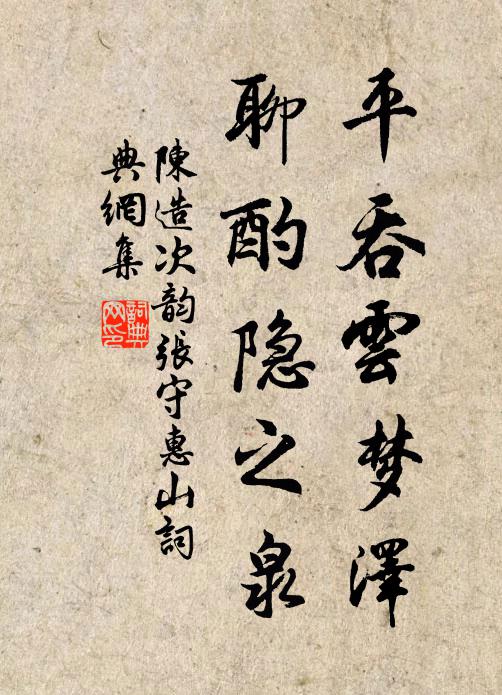 平吞雲梦澤
聊酌隐之泉
陳造次韵張守惠山詞
典網集
詞典网印